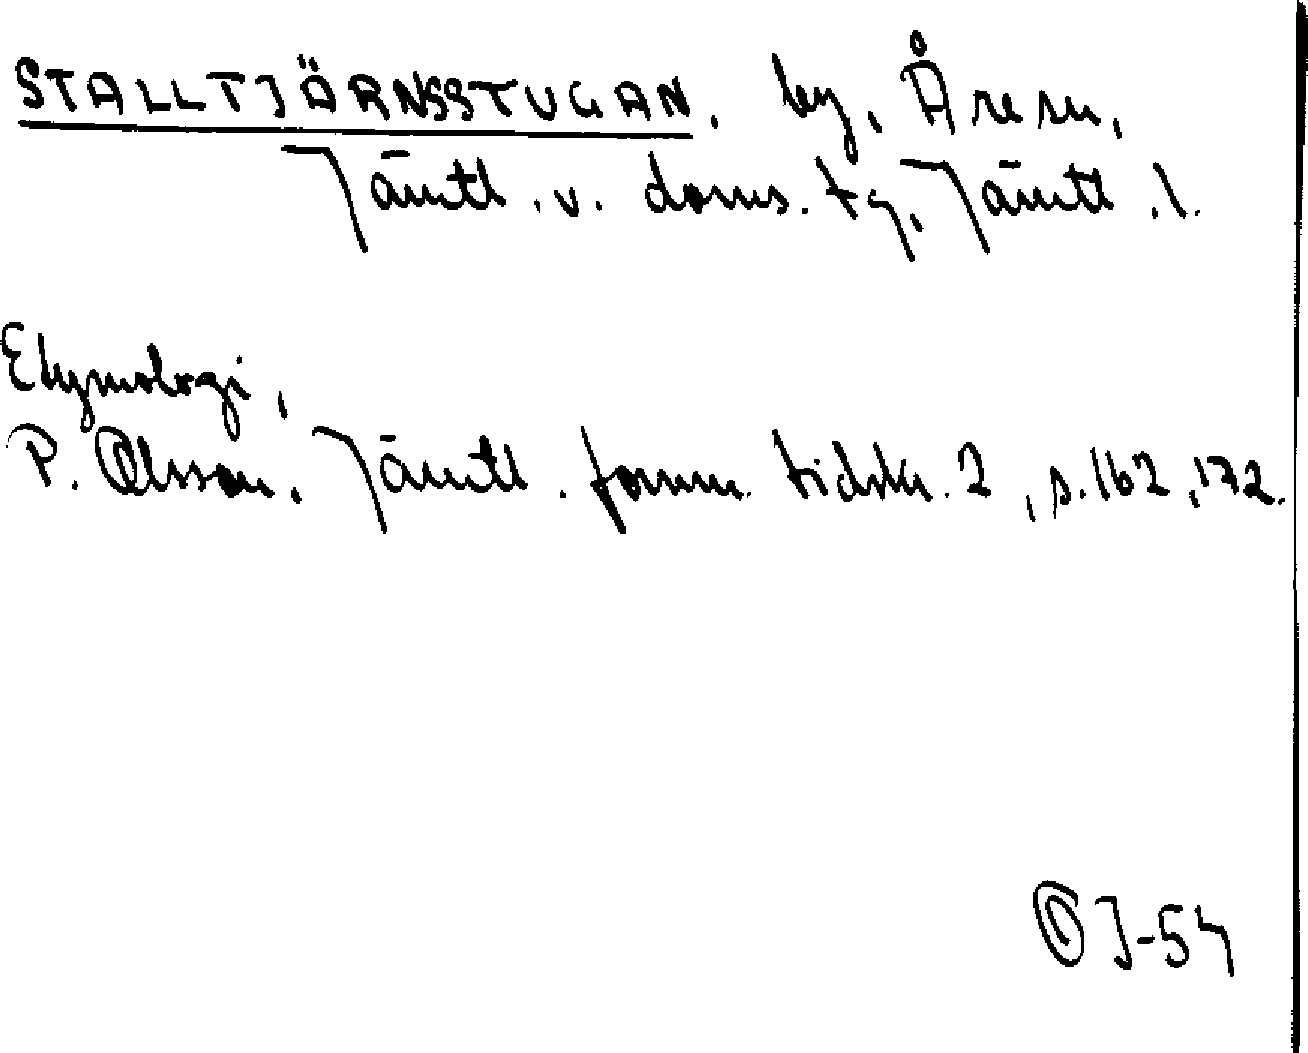 STALLTJÄRNSSTUGAN, by, Åre sn,
Jämtl. v. doms. tg, Jämtl. l.
Etymologi,
P. Olsson. Jämtl. fornm. tidskr. 2, s. 162, 172.
OJ-54